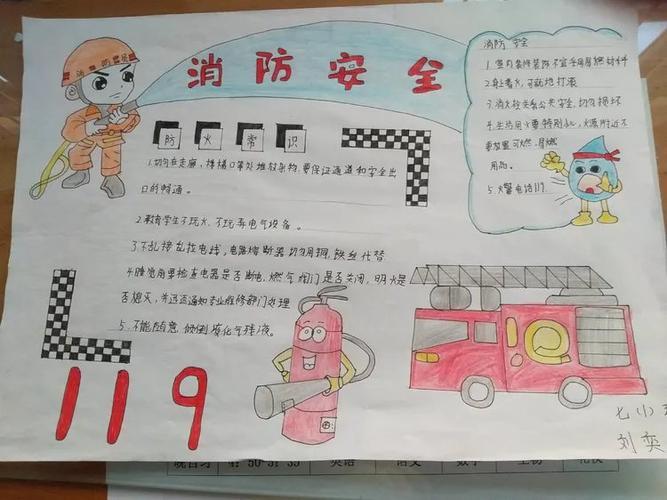 消防安全
消防安全
1.室内装修装饰不宜采用易燃材料
2.身上着火,可就地打滚
3.消火栓关系公共安全,切勿损坏
4.生活用火要特别小心,火源附近不
要放置可燃、易燃
用品。
5.火警电话119.
防火常识
1.切勿在走廊、楼梯口等处堆放杂物,要保证通道和安全出
口的畅通。
2.教育学生不玩火、不玩弄电气设备。
3.不乱接乱拉电线,电路熔断器切勿用铜、铁丝代替
4.睡觉前要检查电器是否断电,燃气阀门是否关闭,明火是
否熄灭,并迅速通知专业维修部门处理
5.不能随意倾倒液化气残液。
119
七(1)
刘奕
晚自习 英语 语文 数学 生物